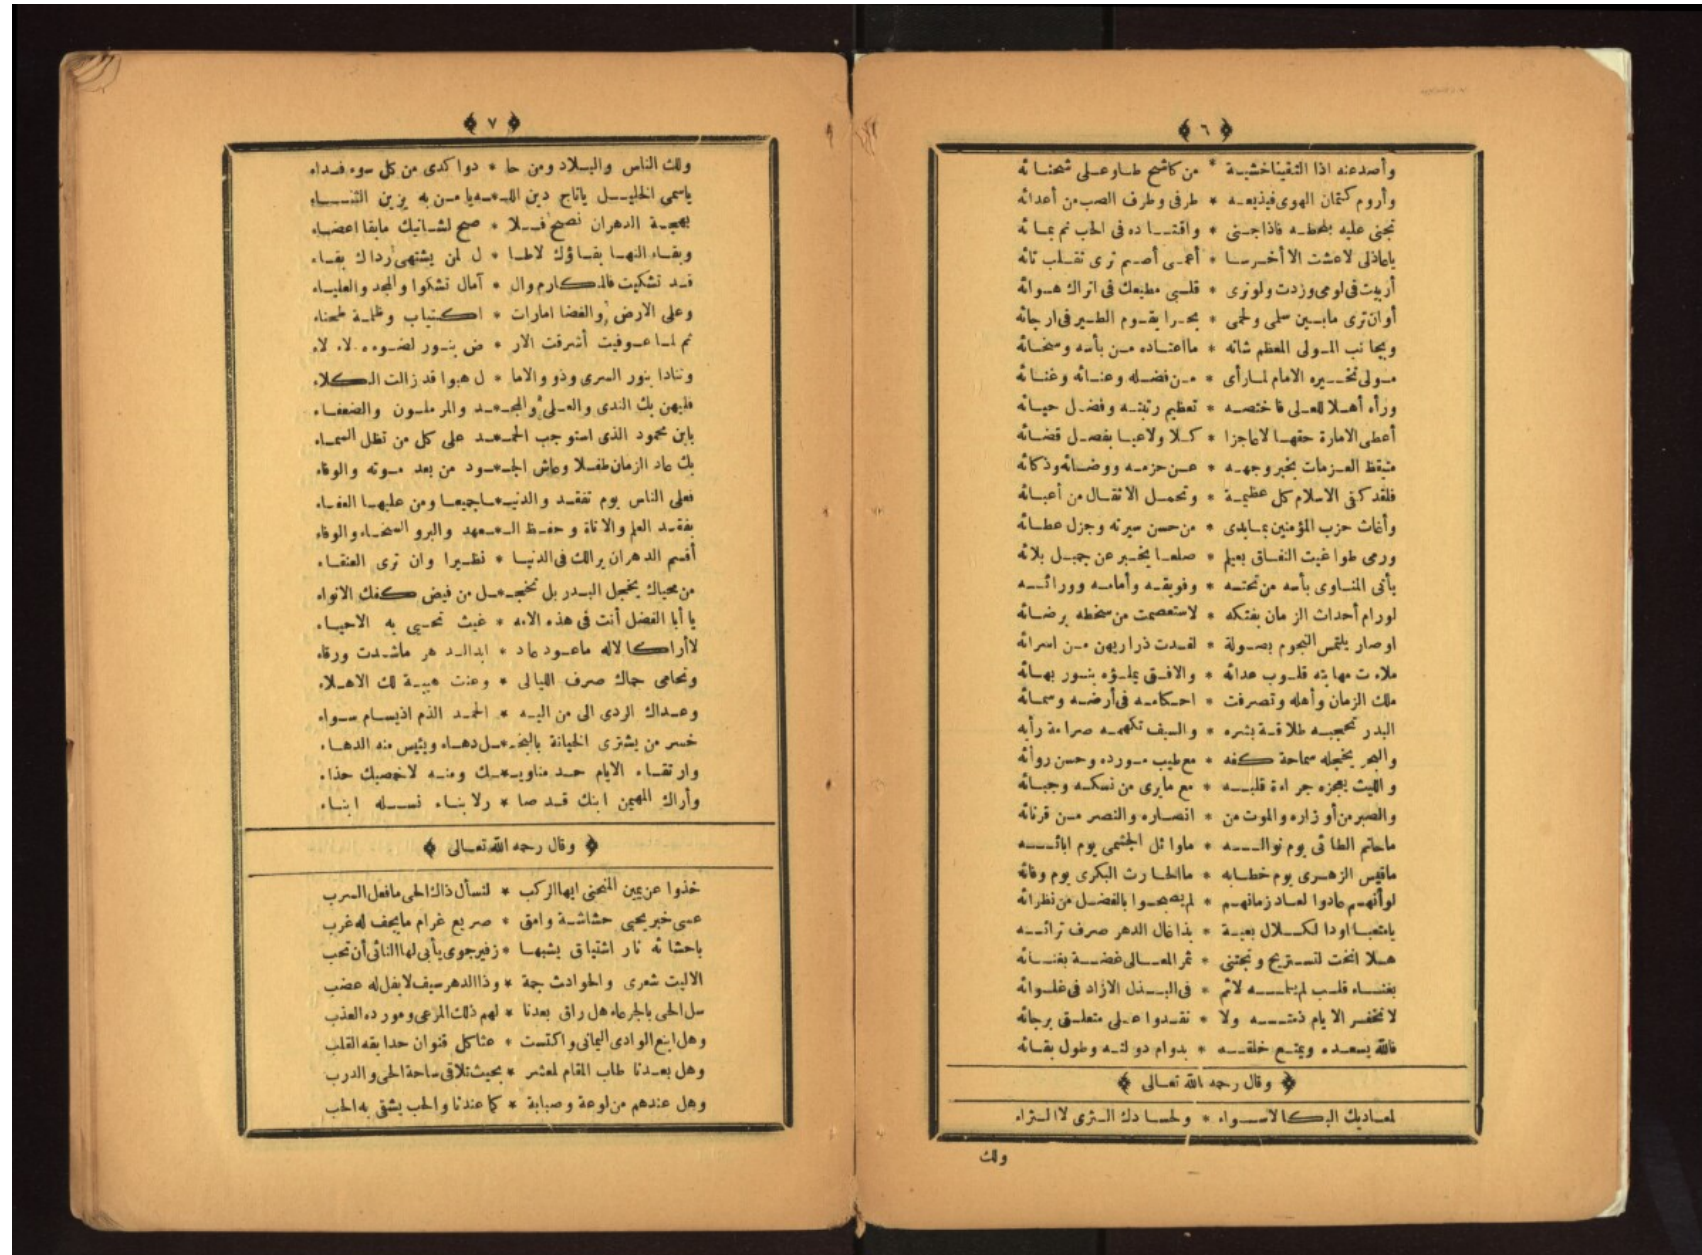 ﴿ ٦ ﴾
وأصدعنه اذا التقيناخشية * من كاشح طاو عـلى شحنـائه
وأروم كتمان الهوى فيذيعـه * طرفى وطرف الصب من أعدائه
تجنى عليه بلحظـه فاذاجـنى * واقتـاده فى الحب تم بمـائه
ياعاذلى لاعشت الا أخرسـا * أعمـى أصـم ترى تقـلب تائه
أربيت فى لومى وزدت ولوترى * قلـبى مطيعك فى اتراك هـوائه
أوان ترى مابـين سلمى ولحمى * بحـرا يقـوم الطـير فى ارجائه
وبجانب المـولى المعظم شانه * مااعتـاده مـن بأسه وسخـائه
مـولى تخـيره الامام لمـارأى * مـن فضـله وعنـائه وغنـائه
ورأه أهـلا للعـلى فاختصـه * تعظيم رتبتـه وفضـل حيـائه
أعطى الامارة حقهـا لاعاجزا * كـلا ولاعيـا بفصـل قضـائه
متيقظ العـزمات يخبر وجهـه * عـن حزمـه ووضـائه وذكائه
فلقد كفى الاسلام كل عظيمـة * وتحمـل الاثقـال من أعبـائه
وأغاث حزب المؤمنين بمـابدى * من حسن سيرته وجزل عطـائه
ورمى طواغيت النفـاق بعيلم * صلعـا يخـبر عن جميـل بلائه
يأتى المنـاوى بأسـه من تحتـه * وفويقـه وأمامـه وورائـه
لورام أحداث الزمان بفتكه * لاستعصمت من سخطه برضـائه
اوصار يلتمس النجوم بصـولة * لغـدت ذراريهن مـن اسرائه
ملاءت مهابته قلـوب عدائه * والافـق يملـؤه بنـور بهـائه
ملك الزمان وأهله وتصرفت * احـكامـه فى أرضـه وسمـائه
البدر تحجبـه طلاقـة بشره * والسيف تكهمـه صرامة رأيه
والبحر يخجله سماحة كفه * مع طيب مـورده وحسن روائه
والليث يعجزه جراءة قلبـه * مع مايرى من نسكـه وحيـائه
والصبر من أوزاره والموت من * انصـاره والنصر مـن قرنائه
ماحاتم الطائى يوم نوالـه * ماوائل الجشمى يوم ابائـه
ماقيس الزهـرى يوم خطـابه * ماالحارث البكرى يوم وفائه
لوأنهـم عادوا لعـاد زمانهـم * لم يصبحـوا بالفضـل من نظرائه
يامتعبـا اودا لكـلال بعيـة * بذاغال الدهر صرف ترائـه
هـلا انخت لتستريح وتجتنى * ثمر المعـالى غضـة بفنـائه
بفنـاء قلـب لم يملـه لائم * فى البـذل الازاد فى غلـوائه
لاتخفـر الايام ذمتـه ولا * نقـدوا عـلى متعلـق برجائه
فالله يسعـده ويمتـع خلقـه * بدوام دولتـه وطول بقـائه
﴿ وقال رحمه الله تعـالى ﴾
لمعـاديك البـكا لاسـواء * ولحسـادك الـثرى لا الـثراء
ولك
﴿ ٧ ﴾
ولك الناس والبـلاد ومن حا * دواكدى من كل سوء فـداء
ياسمى الخليـل ياتاج دين اللـ*ـه يا مـن به يزين الثنـاء
بهجـة الدهران نصح فـلا * صح لشـانيك مابقا اعضـاء
وبقـاء النهـا بقـاؤك لاطـا * ل لمن يشتهى رداك بقـاء
قـد تشكيت فالمـكارم وال * آمال تشكوا والمجد والعليـاء
وعلى الارض والفضا امارات * اكـتياب وظلمـة طحناء
ثم لمـا عـوفيت أشرقت الار * ض بنـور لضـوءه لا لاء
وتنادا بنور السرى وذو والاما * ل هبوا قد زالت الـكلاء
فليهن بك الندى والعـلى والمجـ*ـد والمرملـون والضعفـاء
يابن محمود الذى استوجب الحمـ*ـد على كل من تظل السمـاء
بك عاد الزمان طفـلا وعاش الجـ*ـود من بعد مـوته والوفاء
فعلى الناس يوم تفقـد والدنيـ*ـا جميعـا ومن عليهـا العفـاء
بفقـد العلم والاناة وحفـظ الـ*ـعهد والبرو السخـاء والوفاء
أقسم الدهران يرالك فى الدنيـا * نظـيرا وان ترى العنقـاء
من محياك يخجل البـدر بل تخجـ*ـل من فيض كـفك الانواء
يا أبا الفضل أنت فى هذه الامـه * غيث تحـيى به الاحيـاء
لاأراكـا لاله ماعـود عاد * ابدالـد هر ماشـدت ورقاء
وتحامى حماك صرف الليالى * وعنت هيبـة لك الاهـلاء
وعـداك الردى الى من اليـه * الحمـد الذم اذيسـام سـواء
خسر من يشترى الخيانة بالبخـ*ـل دهـاء ويئيس منه الدهـاء
وارتقـاء الايام حـد مناويـ*ـك ومنـه لاخصيك حذاء
وأراك المهيمن ابنك قـد صا * رلابنـاء نسـله ابنـاء
﴿ وقال رحمه الله تعـالى ﴾
خذوا عن يمين المنحنى ايها الركب * لنسأل ذاك الحى مافعل السرب
عسى خبر يحيى حشاشـة وامق * صريع غرام مايجف له غرب
باحشائه نار اشتياق يشبهـا * زفير جوى يأبى لها النائى أن تحب
الاليت شعرى والحوادث جمة * وذاالدهر سيف لايفل له عضب
سل الحى بالجرعاء هل راق بعدنا * لهم ذلك المرعى ومورده العذب
وهل اينع الوادى اليمانى واكتست * عثاكل قنوان حدايقه القلب
وهل بعـدنا طاب المقام لمعشر * بحيث تلاقى ساحة الحى والدرب
وهل عندهم من لوعة وصبابة * كما عندنا والحب يشقى به الحب